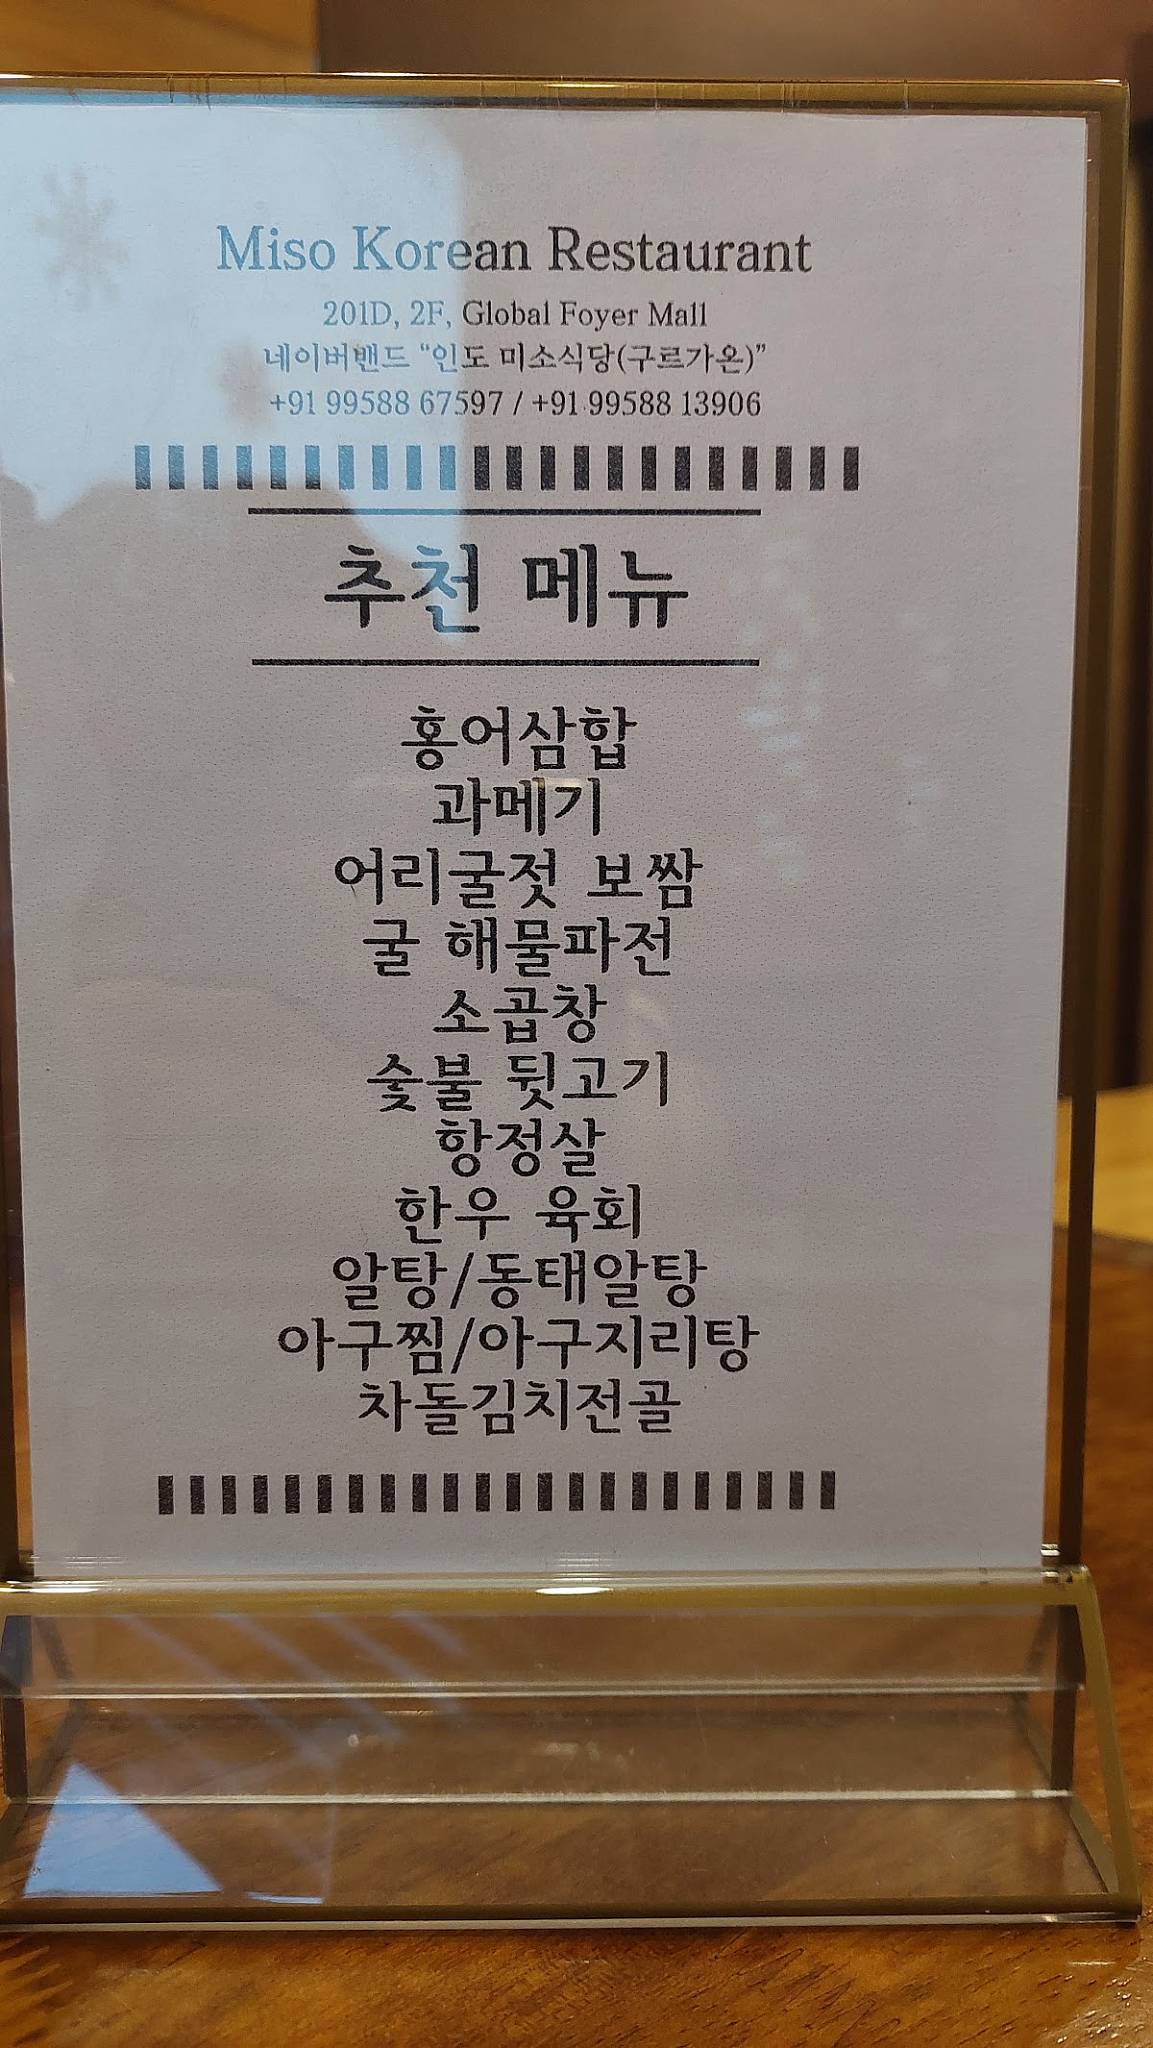 Miso Korean Restaurant
201D, 2F, Global Foyer Mall
네이버밴드 “인도 미소식당(구르가온)”
+91 99588 67597 / +91 99588 13906
추천 메뉴
홍어삼합
과메기
어리굴젓 보쌈
굴 해물파전
소곱창
숯불 뒷고기
항정살
한우 육회
알탕/동태알탕
아구찜/아구지리탕
차돌김치전골